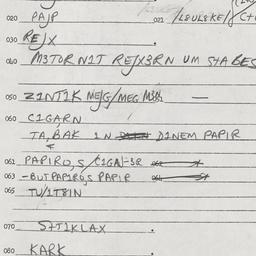 020 PAJP 021 /L8UL8KE/
030 REJX .
040 M3TORN1T REJX3RN UM STABES
050 Z1NT1K MEJG/MEG M3R —
060 C1GARN
TA,BAK 1N D1NEM PAPIR
061 PAPIRO,S/C1GA
063 -BUTPAP1RO,S PAPIR
065 TU/1T81N
070 S+T1KLAX .
080 KARK .